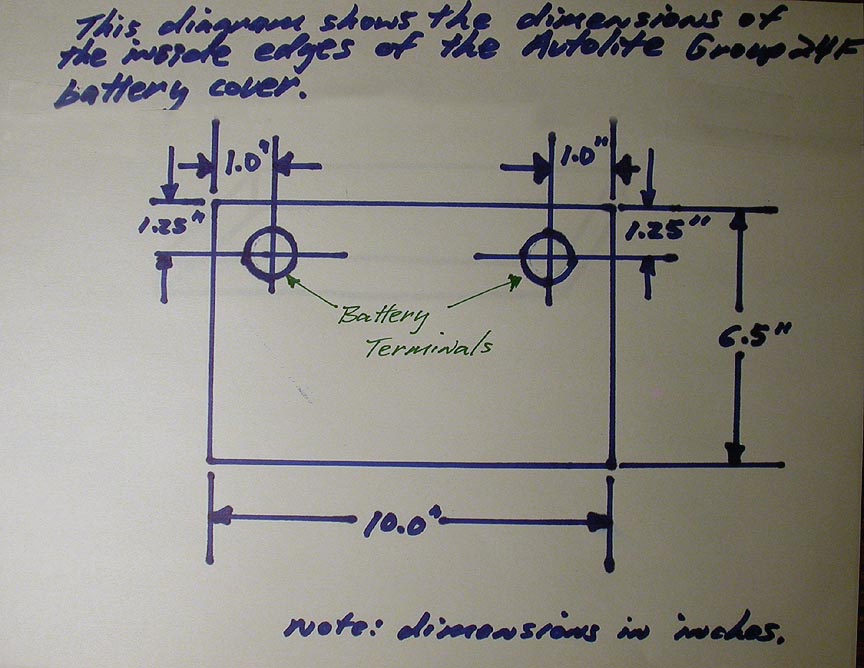 This diagram shows the dimensions of
the inside edges of the Autolite Group 24F
battery cover.
1.0" 1.0"
1.25" 1.25"
Battery
Terminals
6.5"
10.0"
Note: dimensions in inches.